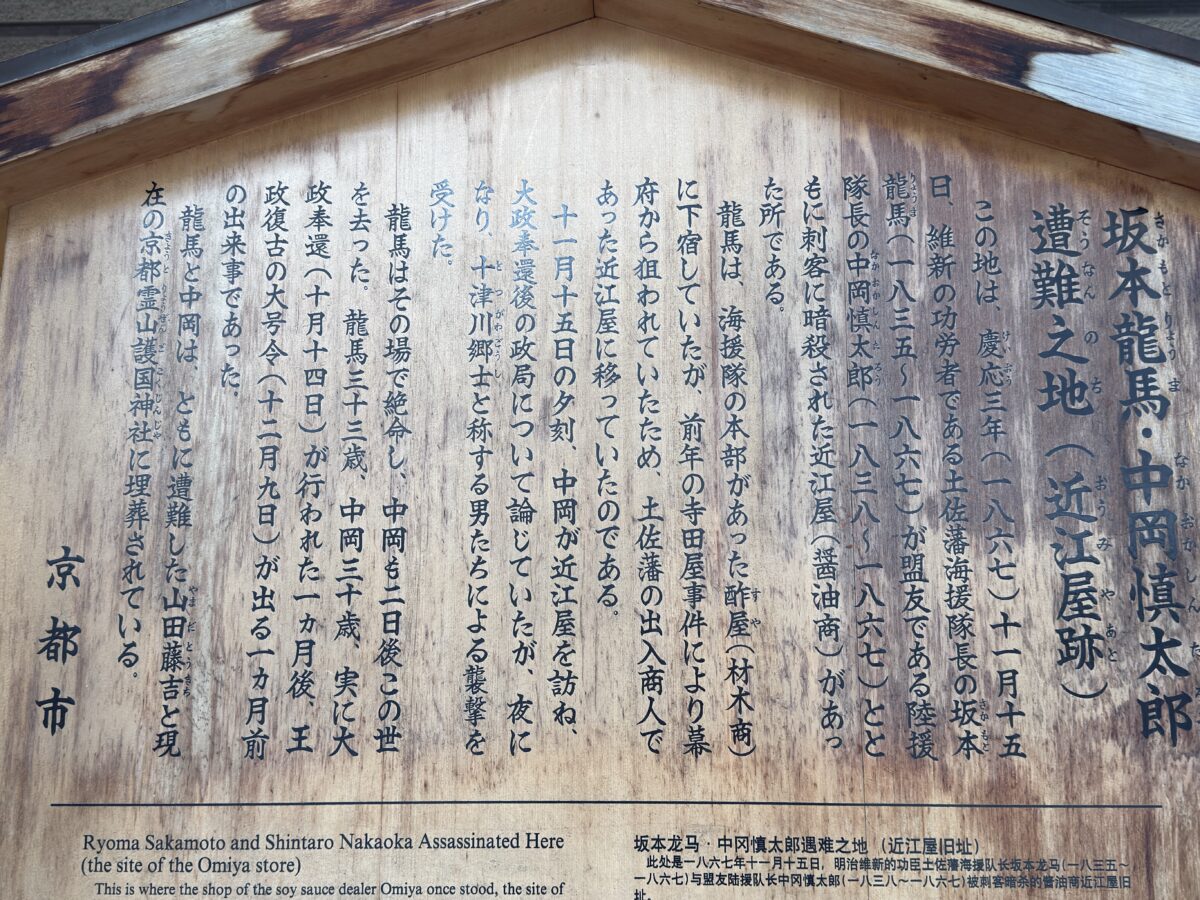 坂本龍馬・中岡慎太郎
遭難之地（近江屋跡）
この地は、慶応三年（一八六七）十一月十五
日、維新の功労者である土佐藩海援隊長の坂本
龍馬（一八三五～一八六七）が盟友である陸援
隊長の中岡慎太郎（一八三八～一八六七）とと
もに刺客に暗殺された近江屋（醤油商）があっ
た所である。
龍馬は、海援隊の本部があった酢屋（材木商）
に下宿していたが、前年の寺田屋事件により幕
府から狙われていたため、土佐藩の出入商人で
あった近江屋に移っていたのである。
十一月十五日の夕刻、中岡が近江屋を訪ね、
大政奉還後の政局について論じていたが、夜に
なり、十津川郷士と称する男たちによる襲撃を
受けた。
龍馬はその場で絶命し、中岡も二日後この世
を去った。龍馬三十三歳、中岡三十歳、実に大
政奉還（十月十四日）が行われた一ヵ月後、王
政復古の大号令（十二月九日）が出る一カ月前
の出来事であった。
龍馬と中岡は、ともに遭難した山田藤吉と現
在の京都霊山護国神社に埋葬されている。
京都市
Ryoma Sakamoto and Shintaro Nakaoka Assassinated Here
(the site of the Omiya store)
This is where the shop of the soy sauce dealer Omiya once stood, the site of
坂本龙马・中冈慎太郎遇难之地（近江屋旧址）
此处是一八六七年十一月十五日，明治维新的功臣土佐藩海援队长坂本龙马(一八三五～
一八六七)与盟友陆援队长中冈慎太郎(一八三八～一八六七)被刺客暗杀的酱油商近江屋旧
址。